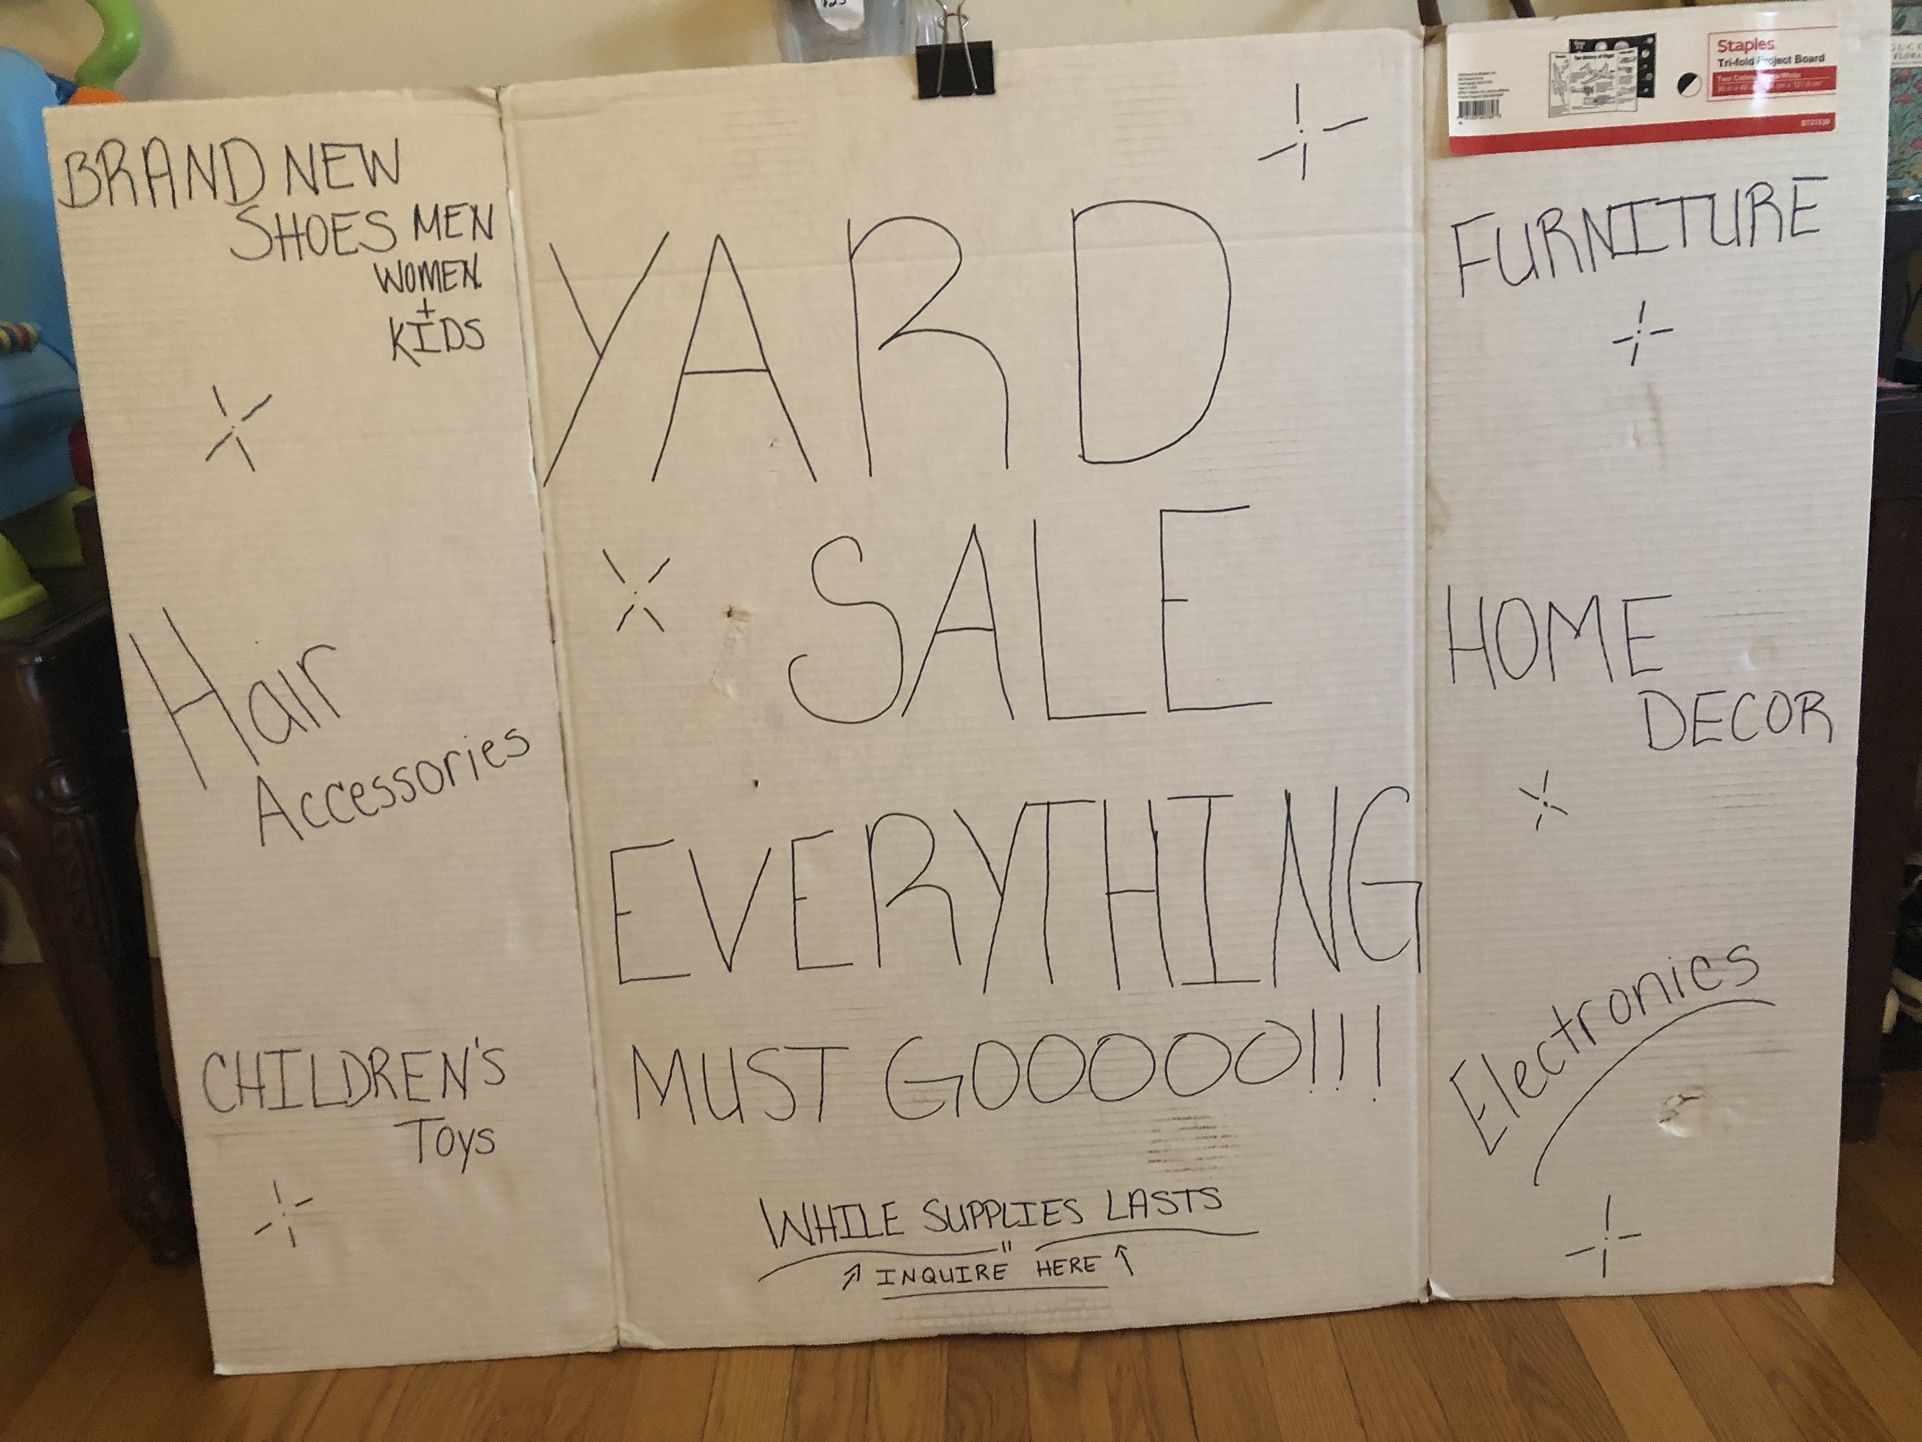 BRAND NEW
SHOES MEN
WOMEN
+
KIDS
Hair
Accessories
CHILDREN'S
Toys
YARD
SALE
EVERYTHING
MUST GOOOOO!!!
WHILE SUPPLIES LASTS
INQUIRE" HERE
Staples
Tri-fold Project Board
FURNITURE
HOME
DECOR
Electronics